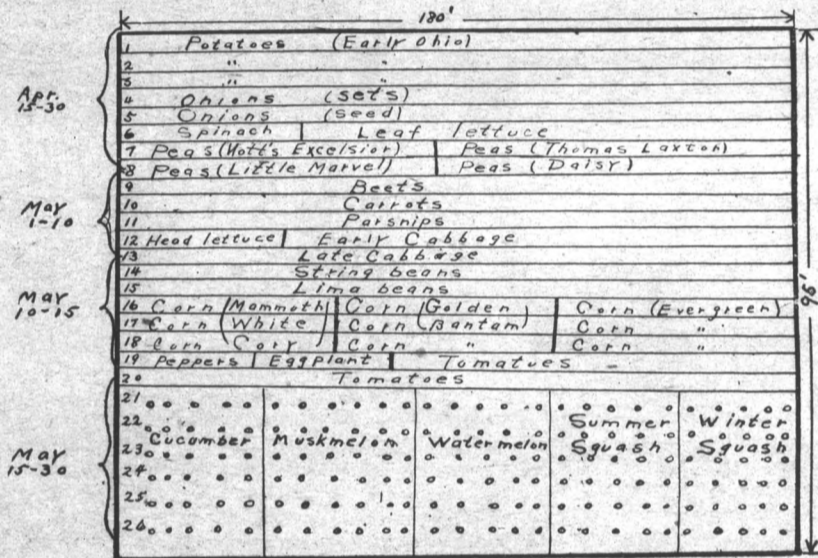 180'
Apr. 15-30
1 Potatoes (Early Ohio)
2 " "
3 " "
4 Onions (sets)
5 Onions (seed)
6 Spinach Leaf lettuce
7 Peas (Nott's Excelsior) Peas (Thomas Laxton)
8 Peas (Little Marvel) Peas (Daisy)
May 1-10
9 Beets
10 Carrots
11 Parsnips
12 Head lettuce Early Cabbage
13 Late Cabbage
May 10-15
14 String beans
15 Lima beans
16 Corn (Mammoth Corn (Golden Corn (Evergreen)
17 Corn White Corn Bantam) Corn "
18 Corn Cory) Corn " Corn "
19 Peppers Eggplant Tomatoes
20 Tomatoes
96'
May 15-30
21
22
23
24
25
26
Cucumber Muskmelon Watermelon Summer Squash Winter Squash